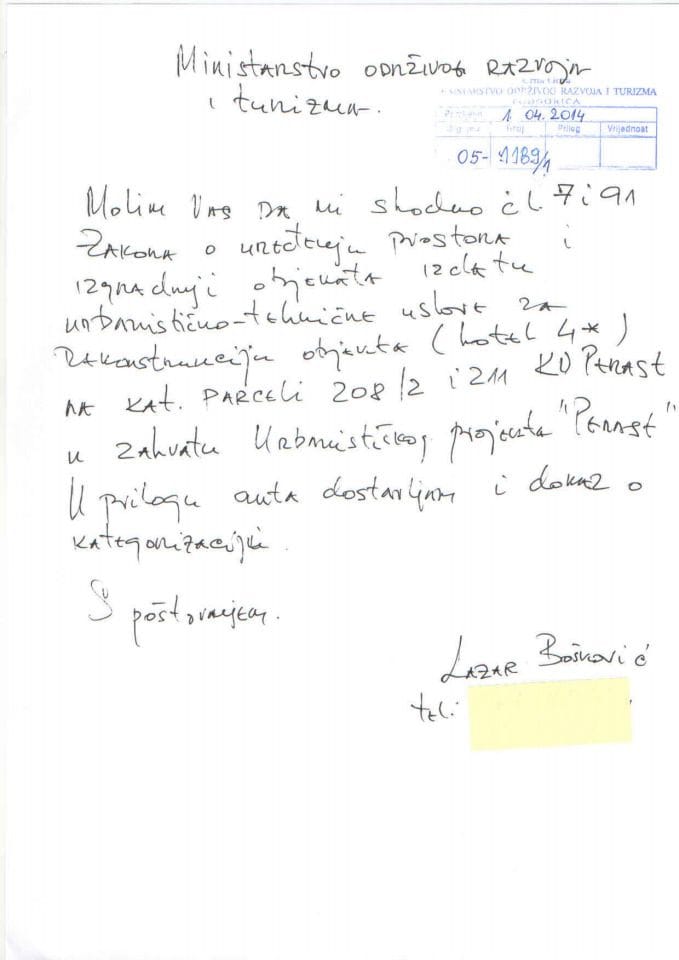 Ministarstvo održivog razvoja
i turizma.
Crna Gora
MINISTARSTVO ODRŽIVOG RAZVOJA I TURIZMA
PODGORICA
Primljeno 1. 04. 2014
Org. jed. Broj Prilog Vrijednost
05- 1189/1
Molim Vas da mi shodno čl. 7 i 91
Zakona o uređenju prostora i
izgradnji objekata izdate
urbanističko-tehničke uslove za
rekonstrukciju objekta (hotel 4*)
na kat. parceli 208/2 i 211 KO Perast
u zahvatu Urbanističkog projekta "Perast"
U prilogu akta dostavljam i dokaz o
kategorizaciji.
S poštovanjem.
Lazar Bošković
tel: